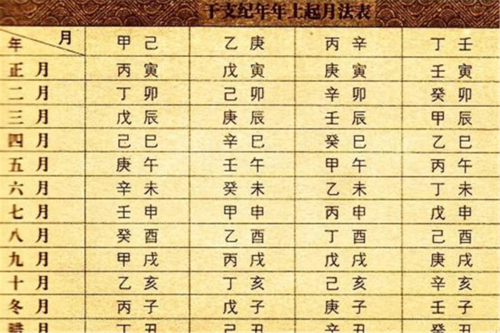 干支纪年年上起月法表
月 年 甲己 乙庚 丙辛 丁壬
正月 丙寅 戊寅 庚寅 壬寅
二月 丁卯 己卯 辛卯 癸卯
三月 戊辰 庚辰 壬辰 甲辰
四月 己巳 辛巳 癸巳 乙巳
五月 庚午 壬午 甲午 丙午
六月 辛未 癸未 乙未 丁未
七月 壬申 甲申 丙申 戊申
八月 癸酉 乙酉 丁酉 己酉
九月 甲戌 丙戌 戊戌 庚戌
十月 乙亥 丁亥 己亥 辛亥
冬月 丙子 戊子 庚子 壬子
腊月 丁丑 己丑 辛丑